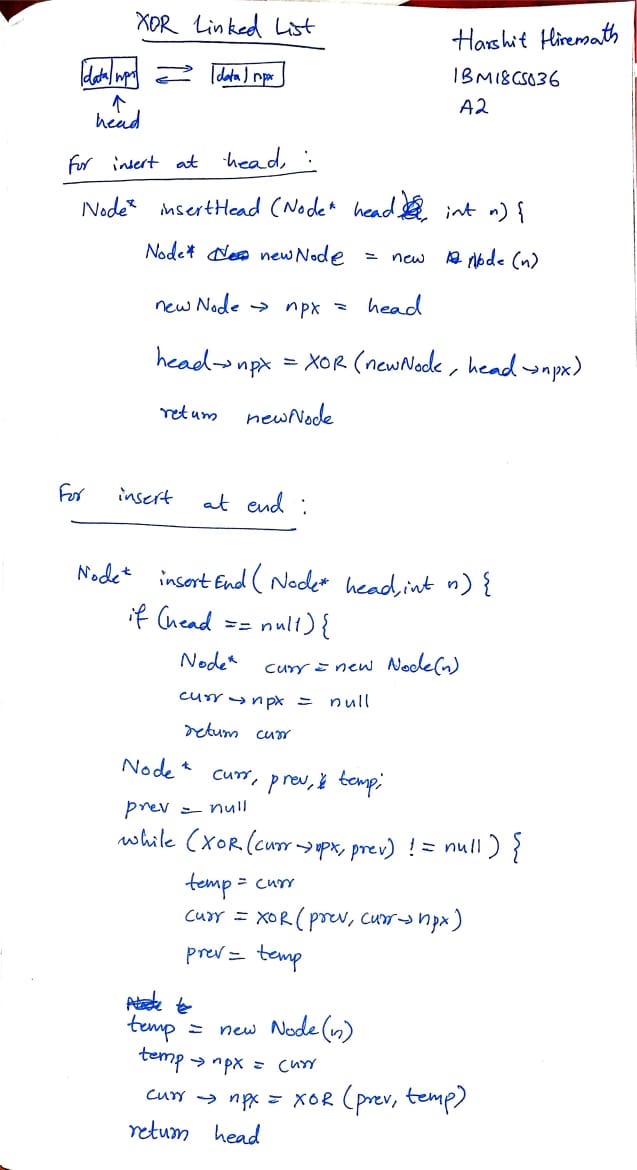 XOR Linked List
Harshit Hiremath
1BM18CS036
A2
data|npx ⇌ data|npx
↑
head
For insert at head, :
Node* insertHead (Node* head, int n) {
Node* newNode = new Node (n)
newNode → npx = head
head→npx = XOR (newNode, head→npx)
return newNode
For insert at end :
Node* insertEnd ( Node* head, int n) {
if (head == null) {
Node* curr = new Node(n)
curr → npx = null
return curr
Node * curr, prev, temp;
prev = null
while (XOR(curr→npx, prev) != null ) {
temp = curr
curr = XOR ( prev, curr→npx )
prev = temp
temp = new Node(n)
temp → npx = curr
curr → npx = XOR (prev, temp)
return head